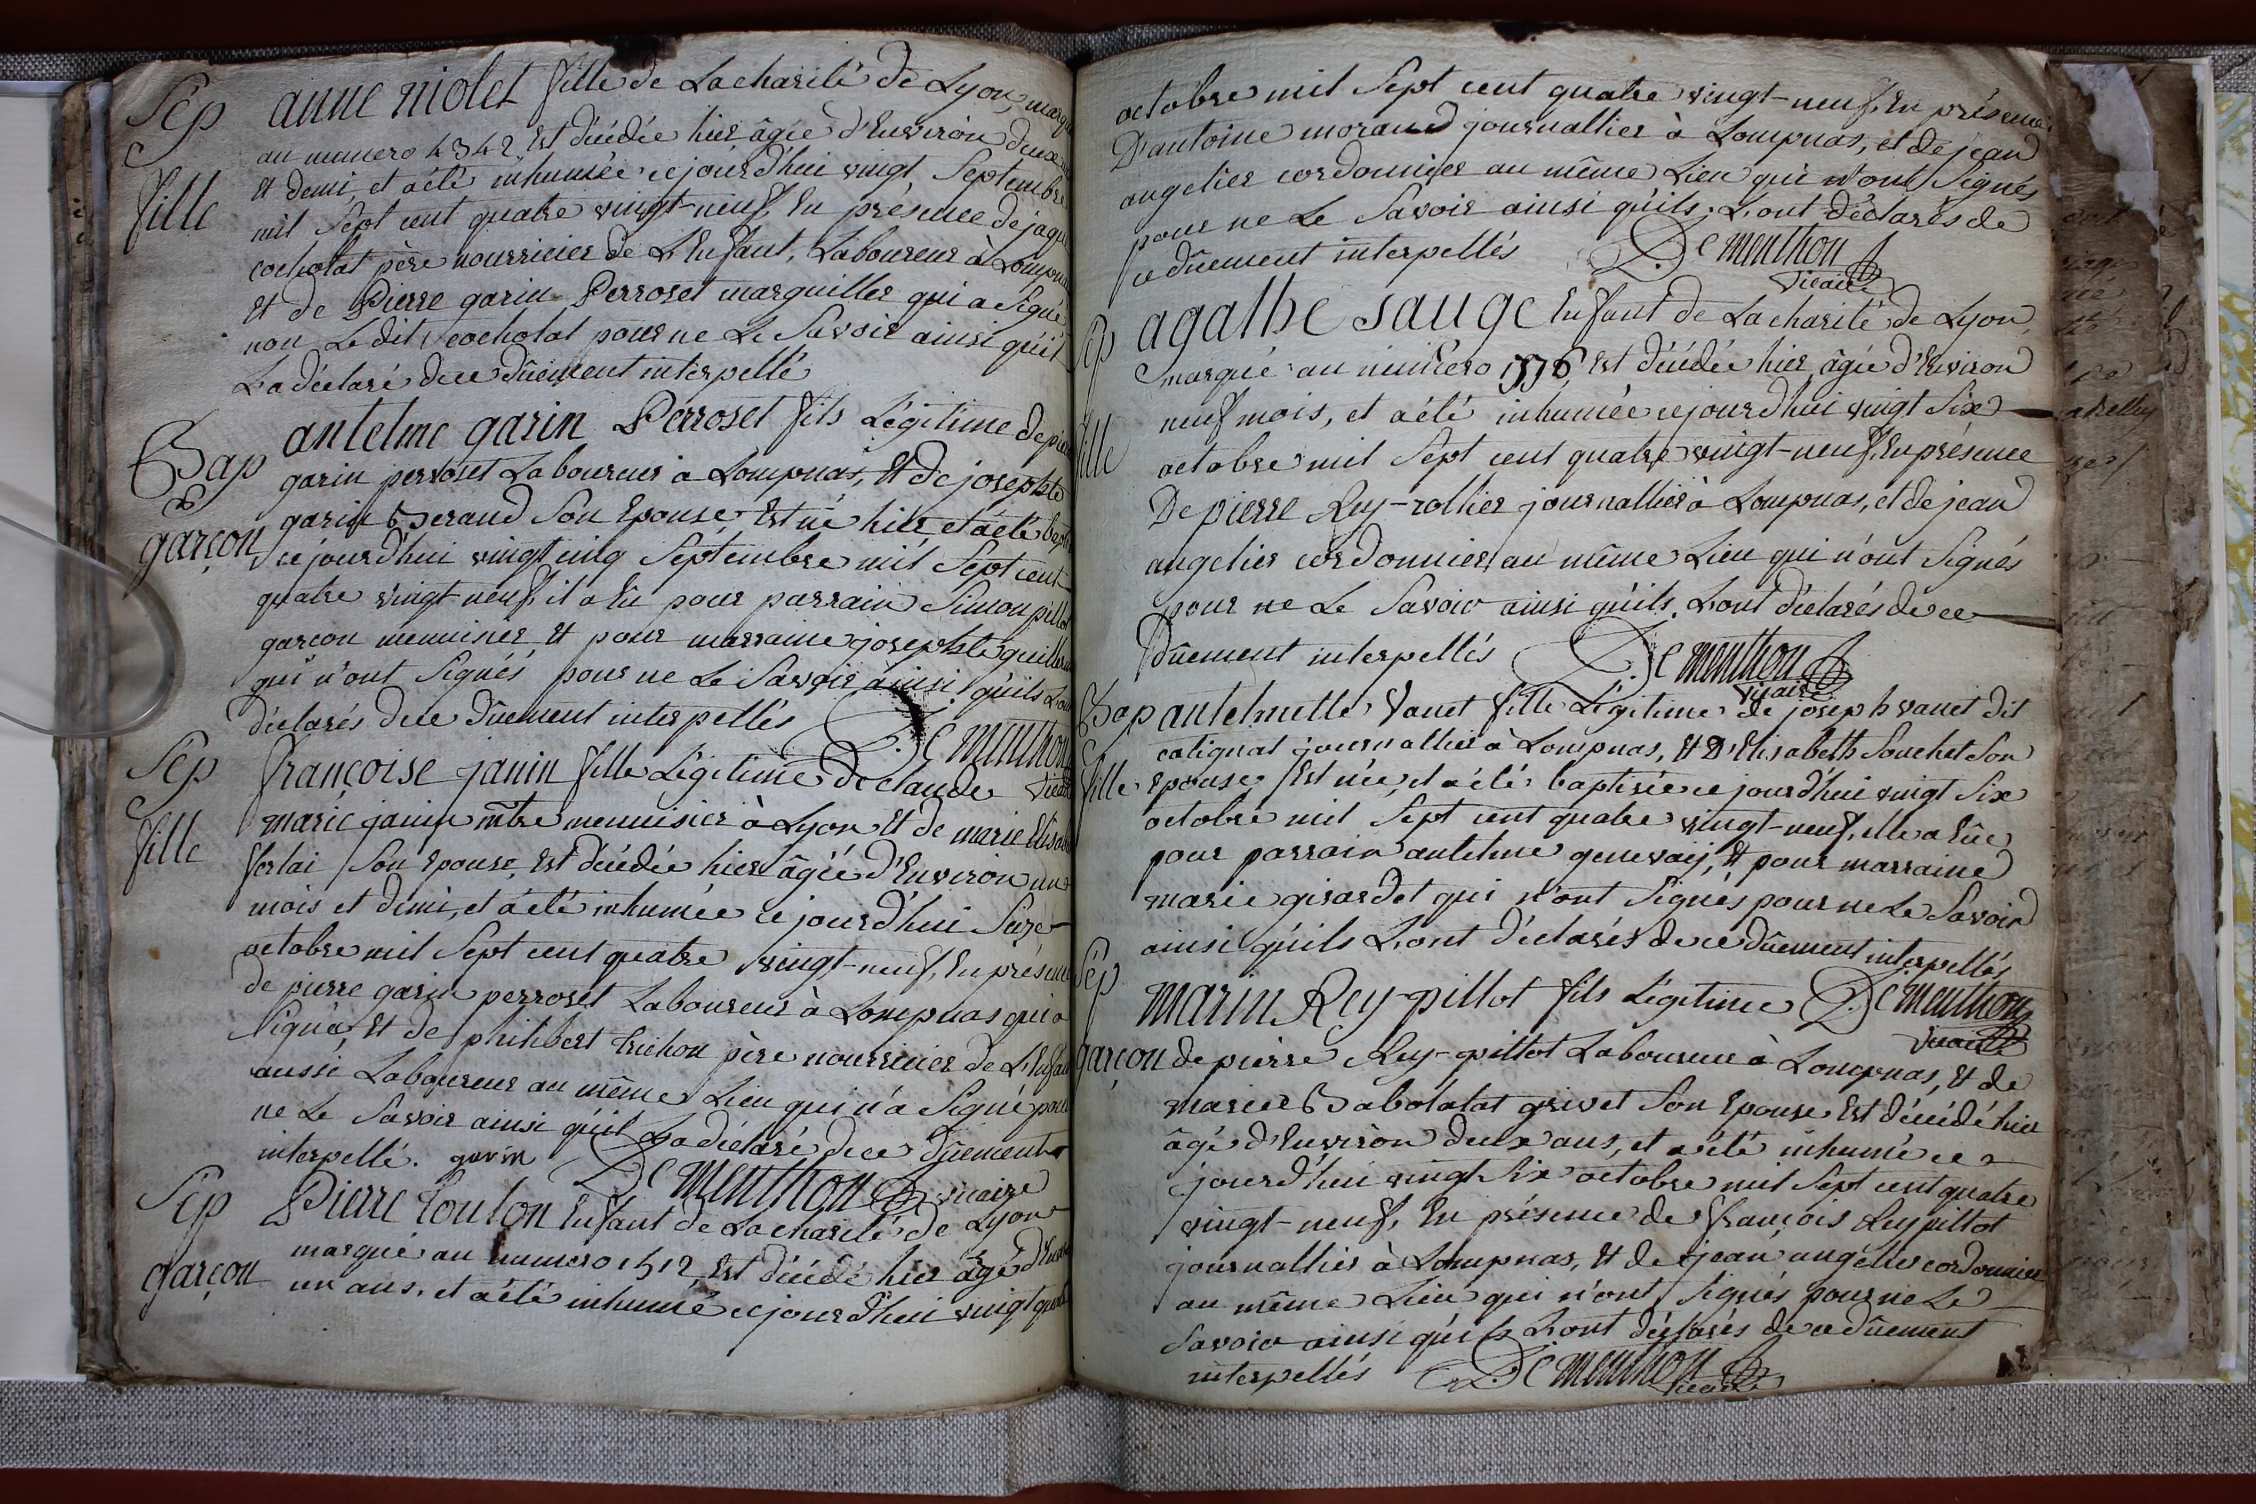 Sep
fille
anne niolet fille de La charité de Lyon, marqu
au numero 4342 Est décédée hier âgée d'Environ deux
Et demi, et a été inhumée ce jourd'hui vingt Septembre
mil Sept cent quatre vingt-neuf, En présence de jaqu
cochotat père nourricier de L'Enfant, Laboureur à Lompna
Et de Pierre garin Perroset marguillier qui a Signé
non Le dit cochotat pour ne Le Savoir ainsi qu'il
L'a déclaré de ce dûement interpellé
Bap
garçon
antelme garin Perroset fils Légitime de pie
garin perroset Laboureur à Lompnas, Et de josephte
garin Berand Son Epouse, Est né hier et a été bap
ce jourd'hui vingt cinq Septembre mil Sept cent
quatre vingt neuf, il a Eu pour parrain Simon pillot
garçon menuisier, Et pour marraine josephte guille
qui n'ont Signés pour ne Le Savoir ainsi qu'ils L'ont
déclarés de ce dûement interpellés De menthon
vicaire
Sep
fille
françoise janin fille Légitime De claude
marie janin mtre menuisier à Lyon Et de marie Elisab
ferlai Son Epouse, Est décédée hier âgée d'Environ un
mois et demi, et a été inhumée ce jourd'hui Seize
octobre mil Sept cent quatre vingt-neuf, En présence
de pierre garin perroset Laboureur à Lompnas qui a
Signé, Et de philibert trichon père nourricier de L'Enfan
aussi Laboureur au même Lieu qui n'a Signé pour
ne Le Savoir ainsi qu'il L'a déclaré de ce dûement
interpellé. garin De menthon vicaire
Sep
garçon
Pierre Toulon Enfant de La charité de Lyon
marqué au numero 1512, Est décédé hier âgé d'Envi
un ans, et a été inhumé ce jourd'hui vingt quatre
octobre mil Sept cent quatre vingt-neuf, En présence
D'antoine morand journallier à Lompnas, et de jean
angelier cordonnier au même Lieu qui n'ont Signés
pour ne Le Savoir ainsi qu'ils L'ont déclarés de
ce dûement interpellés De menthon
vicaire
Sep
fille
agathe sauge Enfant de La charité de Lyon
marqué au numéro Est décédée hier âgée d'Environ
neuf mois, et a été inhumée ce jourd'hui vingt Six
octobre mil Sept cent quatre vingt-neuf, En présence
De pierre Rey-rollier journallier à Lompnas, et de jean
angelier cordonnier au même Lieu qui n'ont Signés
pour ne Le Savoir ainsi qu'ils L'ont déclarés de ce
dûement interpellés De menthon
vicaire
Bap
fille
antelmette Vanet fille Légitime de joseph vanet dit
catignat journallier à Lompnas, Et D'Elisabeth Souchet Son
Epouse, Est née, et a été baptisée ce jourd'hui vingt Six
octobre mil Sept cent quatre vingt-neuf, elle a Eue
pour parrain antelme genevaij, Et pour marraine
marie girardet qui n'ont Signés pour ne Le Savoir
ainsi qu'ils L'ont déclarés de ce dûement interpellés
De menthon
vicaire
Sep
garçon
marin Rey-pillot fils Légitime
de pierre Rey-pillot Laboureur à Lompnas, Et de
marie Babolatat grivet Son Epouse Est décédé hier
âgé d'Environ deux ans, et a été inhumé ce
jourd'hui vingt Six octobre mil Sept cent quatre
vingt-neuf, En présence de françois Rey pillot
journallier à Lompnas, Et de jean angelier cordonnier
au même Lieu qui n'ont Signés pour ne Le
Savoir ainsi qu'ils L'ont déclarés de ce dûement
interpellés De menthon
vicaire